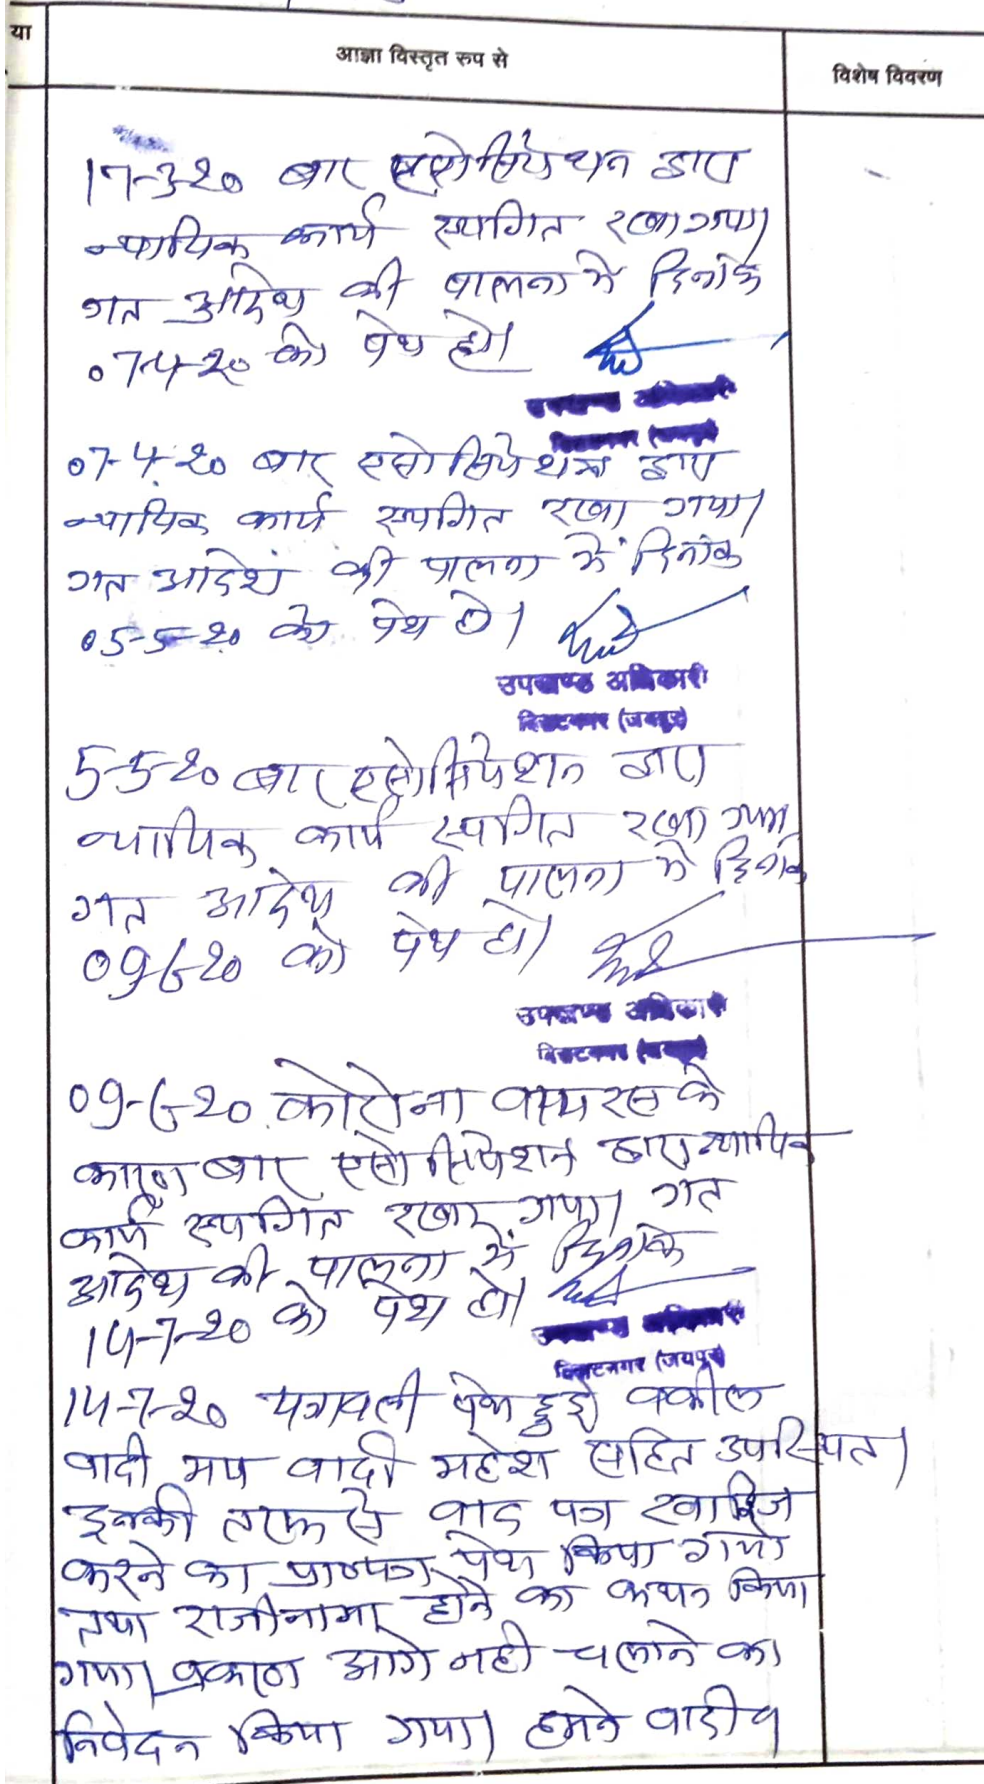 या
आज्ञा विस्तृत रुप से
विशेष विवरण
17-3-20 बार एसोसियेशन द्वारा
न्यायिक कार्य स्थगित रखा गया।
गत आदेश की पालना में दिनांक
07-4-20 को पेश हो।
उपखण्ड अधिकारी
विराटनगर (जयपुर)
07-4-20 बार एसोसियेशन द्वारा
न्यायिक कार्य स्थगित रखा गया।
गत आदेश की पालना में दिनांक
05-5-20 को पेश हो।
उपखण्ड अधिकारी
विराटनगर (जयपुर)
5-5-20 बार एसोसियेशन द्वारा
न्यायिक कार्य स्थगित रखा गया
गत आदेश की पालना में दिनांक
09-6-20 को पेश हो।
उपखण्ड अधिकारी
विराटनगर (जयपुर)
09-6-20 कोरोना वायरस के
कारण बार एसोसियेशन द्वारा न्यायिक
कार्य स्थगित रखा गया। गत
आदेश की पालना में दिनांक
14-7-20 को पेश हो।
उपखण्ड अधिकारी
विराटनगर (जयपुर)
14-7-20 पत्रावली पेश हुई वकील
वादी मय वादी महेश सहित उपस्थित।
इनकी तरफ से वाद पत्र खारिज
करने का प्रा०पत्र पेश किया गया
तथा राजीनामा होने का कथन किया
गया। प्रकरण आगे नही चलाने का
निवेदन किया गया। हमने वादी व